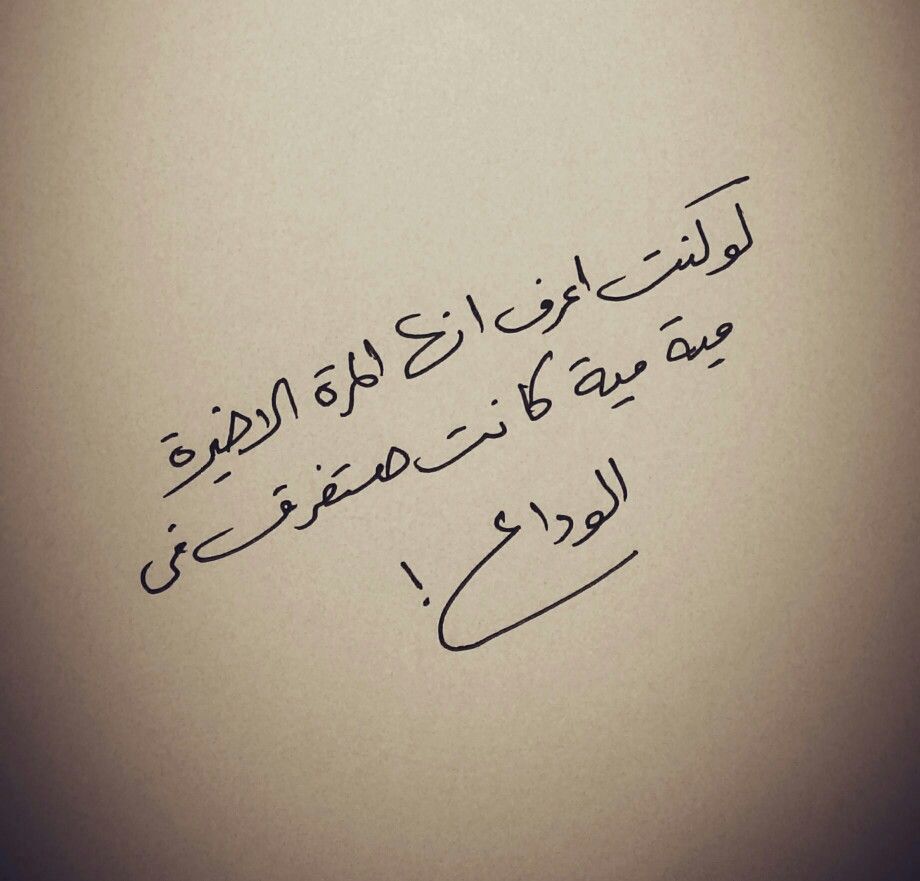 لو كنت اعرف انها المرة الاخيرة
مية مية كانت هتفرق فى
الوداع !